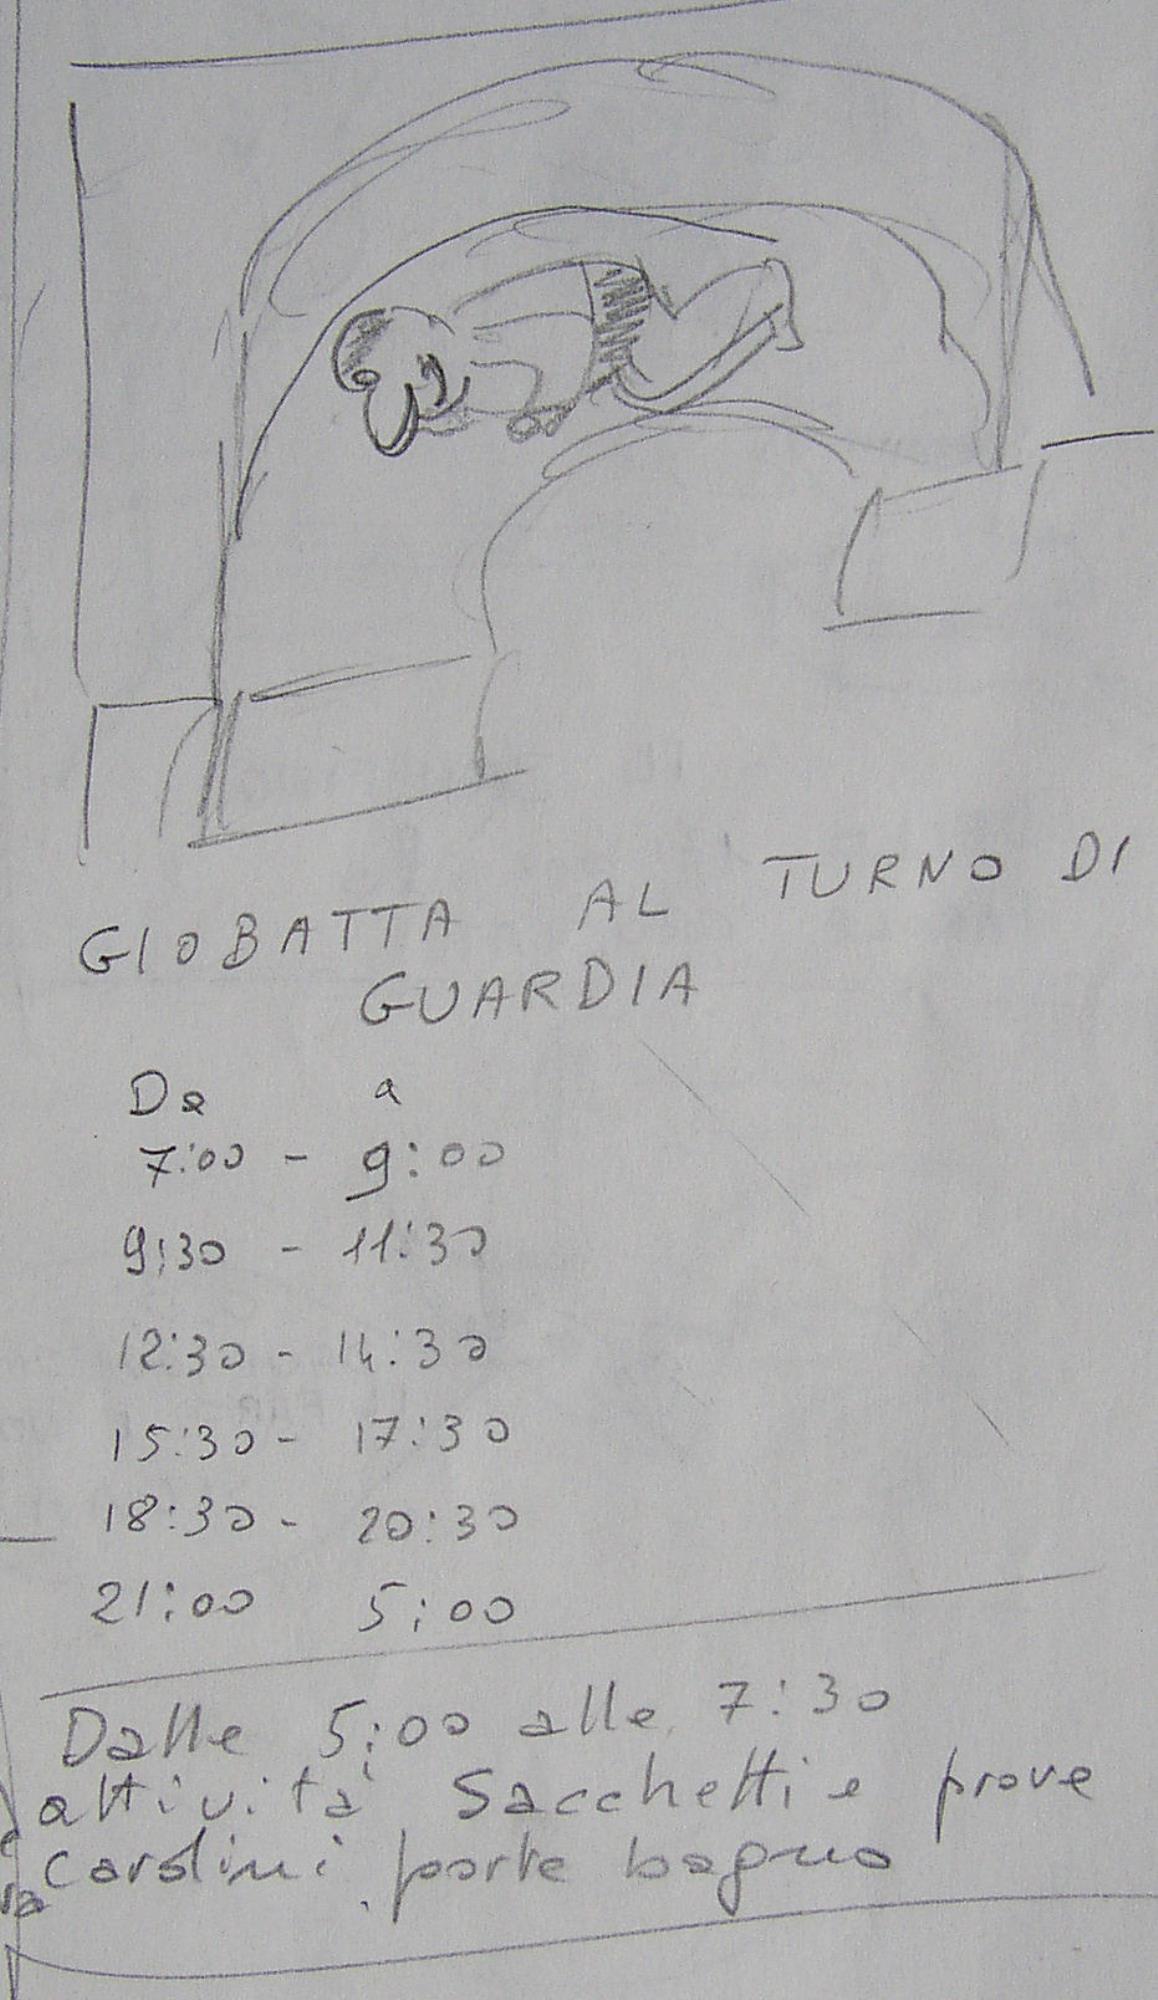 GIOBATTA AL TURNO DI
GUARDIA
Da a
7:00 - 9:00
9:30 - 11:30
12:30 - 14:30
15:30 - 17:30
18:30 - 20:30
21:00 5:00
Dalle 5:00 alle 7:30
attività Sacchetti e prove
cardini porte bagno